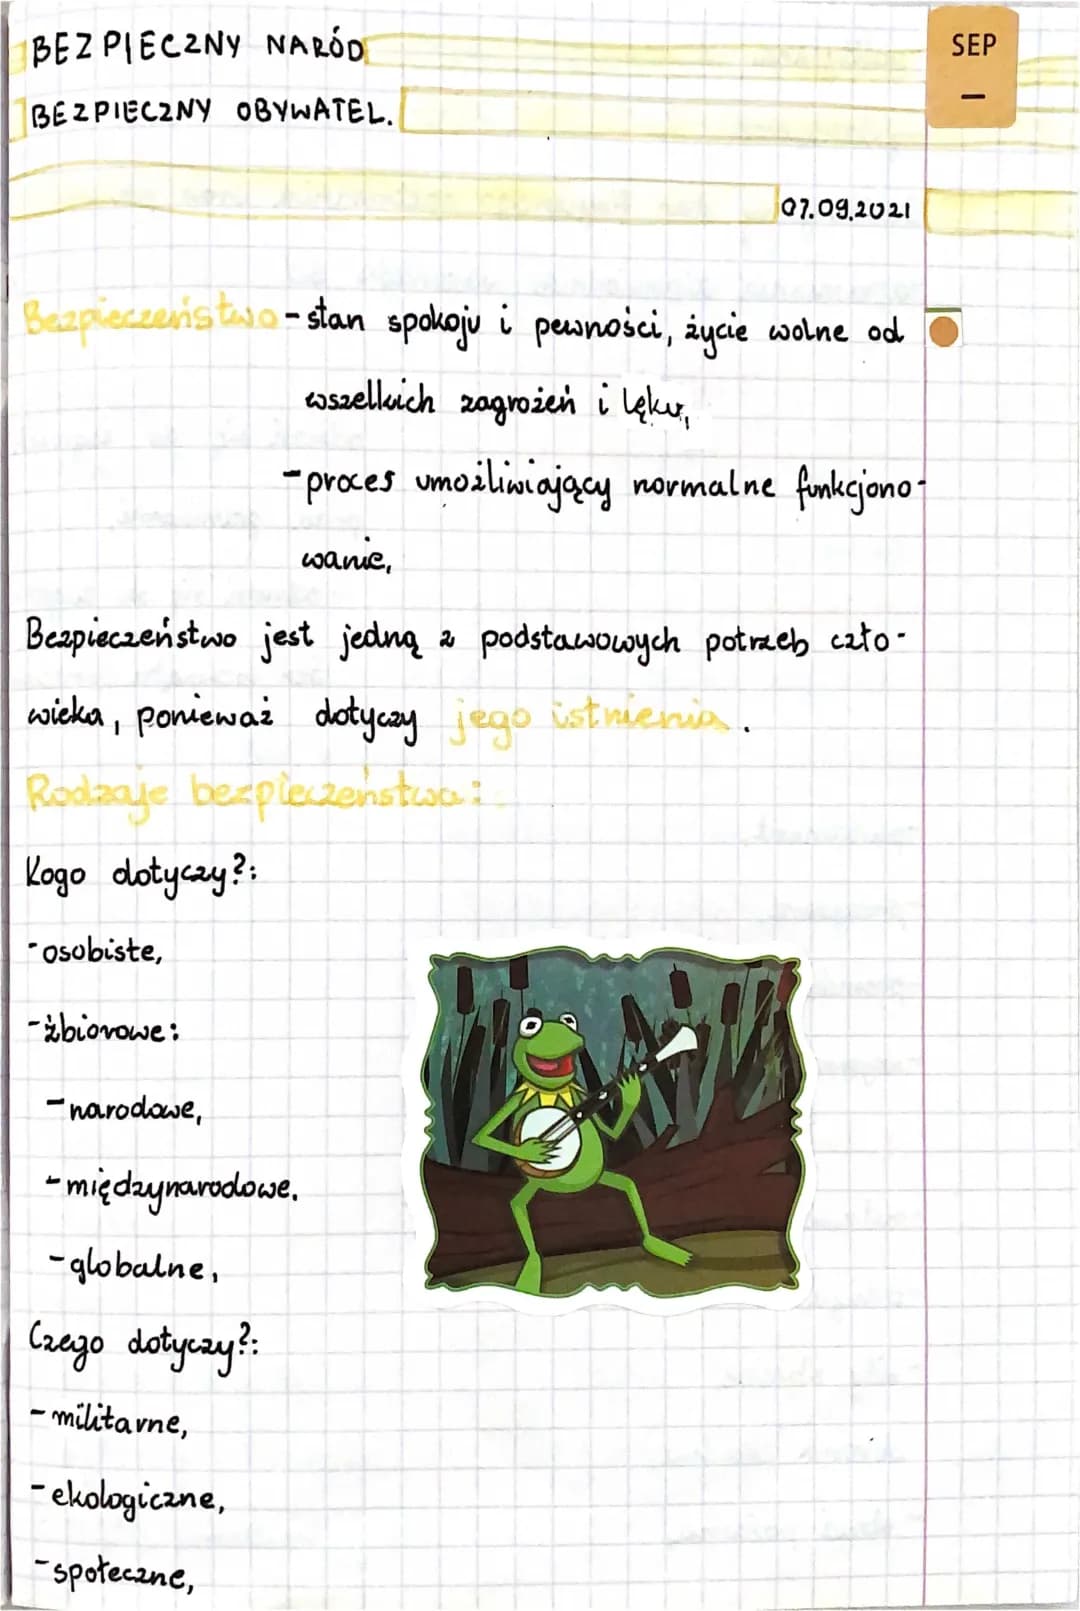 BEZPIECZNY NARÓD
SEP
BEZPIECZNY OBYWATEL.
07.09.2021
Bezpieczeństwo - stan spokoju i pewności, życie wolne od
wszelkich zagrożeń i lęku,
- proces umożliwiający normalne funkcjono-
wanie,
Bezpieczeństwo jest jedną z podstawowych potrzeb czło-
wieka, ponieważ dotyczy jego istnienia.
Rodzaje bezpieczeństwa:
Kogo dotyczy?:
- osobiste,
- żbiorowe:
- narodowe,
- międzynarodowe.
- globalne,
Czego dotyczy?:
- militarne,
- ekologiczne,
- społeczne,